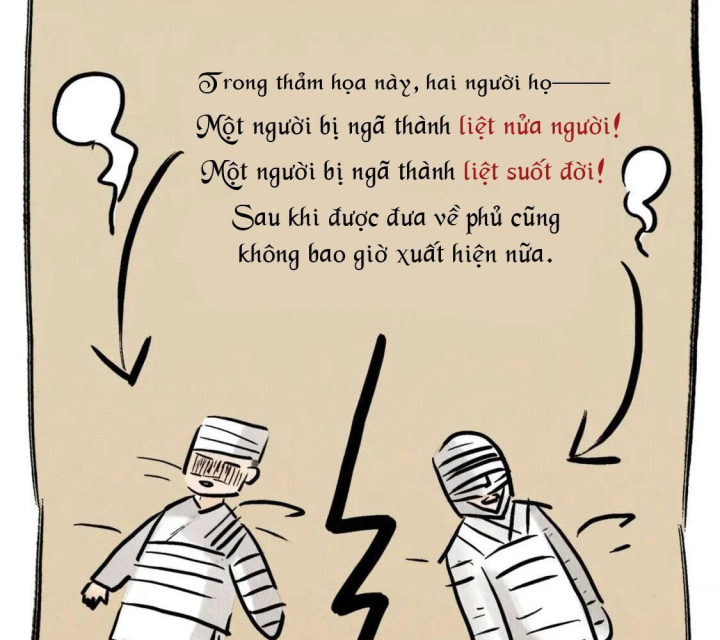 Trong thảm họa này, hai người họ——
Một người bị ngã thành liệt nửa người!
Một người bị ngã thành liệt suốt đời!
Sau khi được đưa về phủ cũng
không bao giờ xuất hiện nữa.